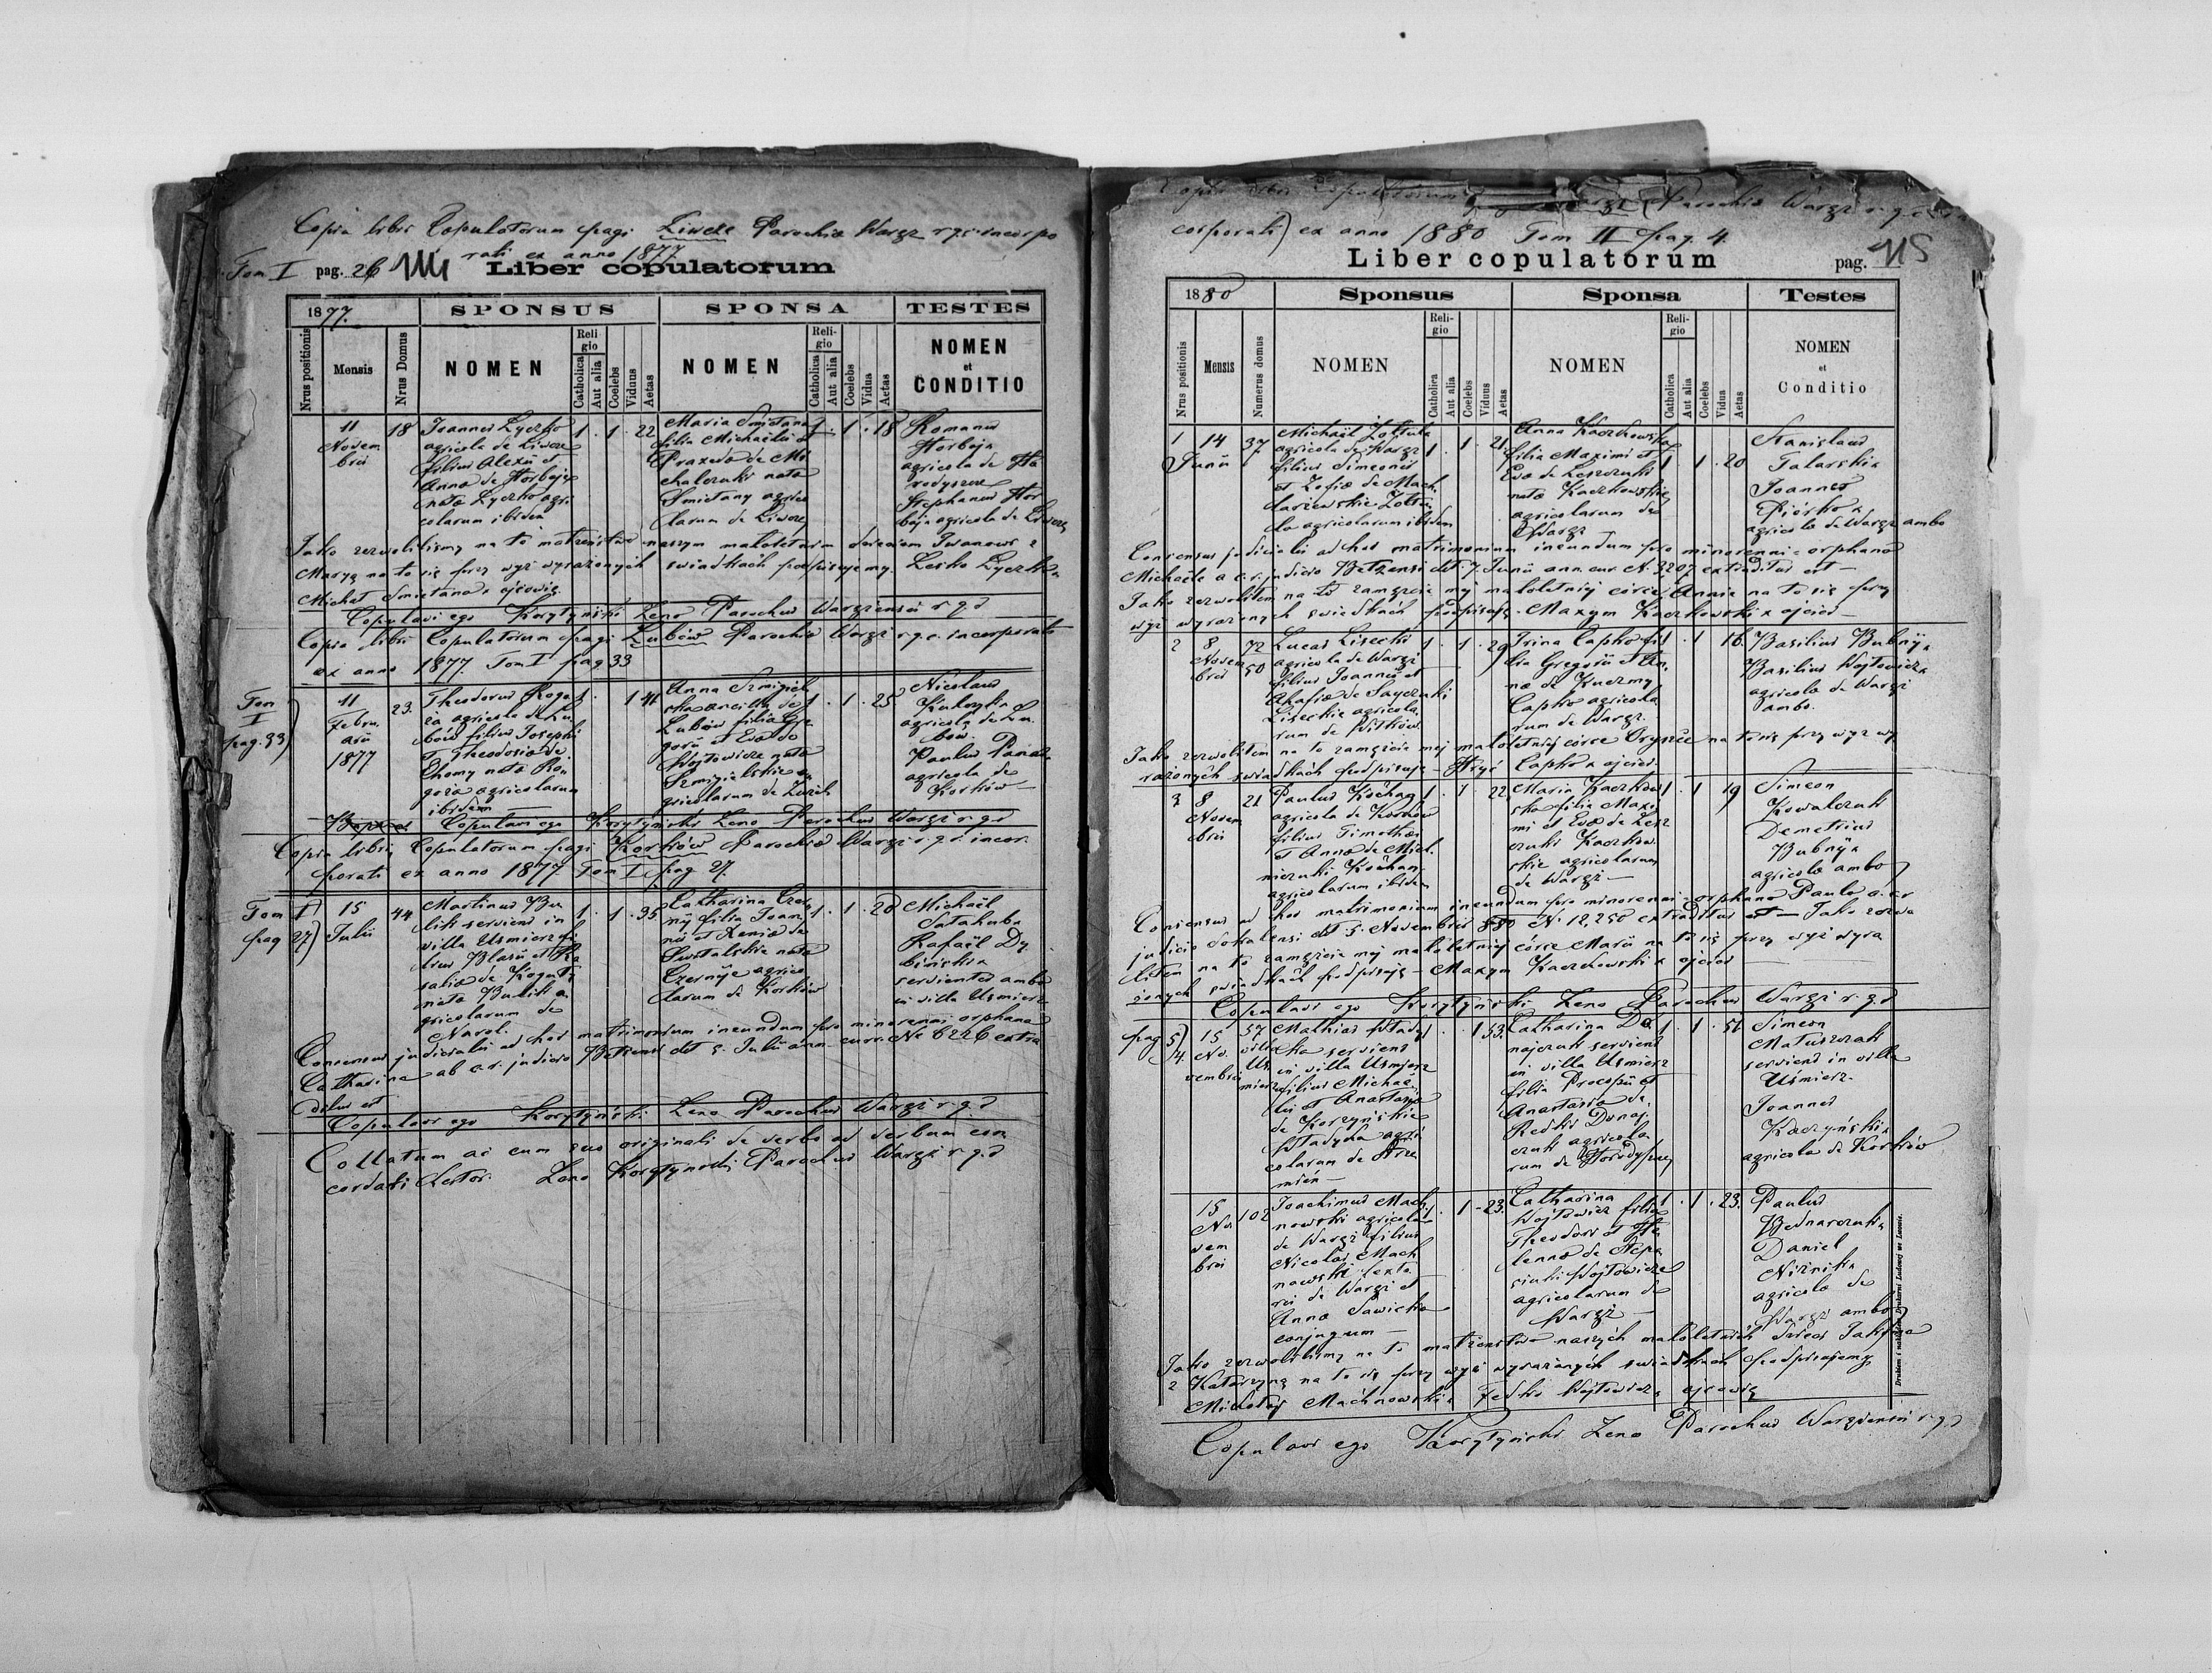 Copia libri Copulatorum pagi Liwcze Parochiæ Waręż r.g.c. incorpo
rati ex anno 1877.
Tom I pag. 26 Liber copulatorum
1877. SPONSUS SPONSA TESTES
Nrus positionis Mensis Nrus Domus NOMEN Religio Catholica Aut alia Coelebs Viduus Aetas NOMEN Religio Catholica Aut alia Coelebs Vidua Aetas NOMEN et CONDITIO
11
Novem
bris
18
Joannes Łyczko
agricola de Liwcze
filius Alexii et
Anna de Horbaja
nata Łyczko agri
colarum ibidem
1 . 1 . 22
Maria Śmietana
filia Michaëlis et
Praxeda de Mi
chalczuki nata
Smietany agrico
larum de Liwcze
1 . 1 . 18
Romanus
Horbaja
agricola de Ho
rodyszcze
Stephanus Hor
baja agricola de Liwcze
Jako zezwoliliśmy na to małżeństwo naszym małoletnim dzieciom Iwanowi i
Maryą na to się przy wyż wyrażonych świadkach podpisujemy. Leśko Łyczko x
Michał Smietana x ojcowie.
Copulavi ego Korytyński Zeno Parochus Wargiensis r.g.c
Copia libri Copulatorum pagi Lubów Parochiæ Waręż r.g.c. incorporati
ex anno 1877. Tom I pag 33
Tom
I
pag. 33)
11
Febru
arii
1877
23.
Theodorus Rogo
za agricola de Lu
bów filius Josephi
et Theodosia de
Chomy nata Ro
goza agricolarum
ibidem
1 . 1 41
Anna Szmigiel
ska ancilla de
Lubów filia Gre
gorii et Eva de
Wojtowicze nata
Szmigielskie a
gricolarum de
1 . 1 . 25
Nicolaus
agricola de Lu
bow.
Paulus
agricola de
Korków
Copulavi ego Korytyński Zeno Parochus Waręż r.g.c
Copia libri Copulatorum pagi Korków Parochiæ Waręż r.g.c. incor
porati ex anno 1877 Tom I pag 27.
Tom I
pag 27)
15
Julii
44
Martinus Bu
lik serviens in
villa Usmierz fi
lius Blasii et Ro
salia de Koguty
nata Bulik a
gricolarum de
Narol.
1 . 1 . 35
Catharina Czer
nij filia Joan
nis et Xenia de
Switalskie nata
Czernije agrico
larum de Korków
1 . 1 . 20
Michaël
Satahuba
Rafaël Dy
biński x
servientes ambo
in villa Usmierz
Consensus judicialis ad hoc matrimonium ineundum pro minorenni orphana
Catharina ab c.r. judicio Bełzensi dto 5. Julii ann. curr. No 6226 extra
ditus est
Copulavi ego Korytyński Zeno Parochus Waręż r.g.c
Collatum ac cum suo originali de verbo ad verbum con
cordati testor. Zeno Korytyński Parochus Waręż r.g.c
corporati) ex anno 1880 Tom II pag. 4.
Liber copulatorum pag. 115
1880 Sponsus Sponsa Testes
Nrus positionis Mensis Numerus domus NOMEN Religio Catholica Aut alia Coelebs Viduus Aetas NOMEN Religio Catholica Aut alia Coelebs Vidua Aetas NOMEN et Conditio
1
14
Junii
37
Michaël Zołtula
agricola de Waręż
filius Simeonis
et Zofia de Mach
larzewskie Zołtu
la agricolarum ibidem
1 . 1 . 21
Anna Kaczkowska
filia Maximi et
Eva de Leszczuki
nata Kaczkowskie
agricolarum de
Waręż
1 1 . 20
Stanislaus
Talarski x
Joannes
Piórko x
agricola de Waręż ambo
Consensus judicialis ad hoc matrimonium ineundum pro minorenni orphano
Michaële a c.r. judicio Bełzensi dto 7. Junii ann. cur. N. 3207 extraditus est —
Jako zezwoliłem na to zamęzcie mej małoletniej córce Annie na to się przy
wyż wyrażonych świadkach podpisuję. Maxym Kaczkowski x ojciec —
2
8
Novem
bris
72
50
Lucas Lisecki
agricola de Waręż
filius Joannis et
Agafia de Sayczuki
Liseckie agricola
rum de Witków
1 . 1 . 29
Irina Capko fi
lia Gregorii et An
na de Kuczmy
Capko agricola
rum de Waręż.
1 . 1 16.
Basilius Bubnij x
Basilius Wojtowicz x
agricola de Waręż
ambo.
Jako zezwoliłem na to zamęzcie mej małoletniej córce Oryszce na to się przy wyż wy
rażonych świadkach podpisuję — Hryć Capko x ojciec.
3
8
Novem
bris
21
Paulus Kochan
agricola de Korków
filius Timothei
et Anna de Miel
niczuki Kochan
agricolarum ibidem
1 . 1 22
Maria Kaczkow
ska filia Maxi
mi et Eva de Lesz
czuki Kaczkow
skie agricolarum
de Waręż —
1 . 1 19
Simeon
Kowalczuk
Demetrius
Bubnij x
agricola ambo
Consensus ad hoc matrimonium ineundum pro minorenni orphano Paulo a c.r
judicio Sokalensi dto 5. Novembris 880 N: 12,250 extraditus est — Jako zezwo
liłem na to zamęzcie mej małoletniej córce Marii na to się przy wyż wyra
żonych świadkach podpisuję — Maxym Kaczkowski x ojciec
Copulavi ego Korytyński Zeno Parochus Waręż r.g.c
pag 5)
4.
15
No
vembris
57
villa
Us
mierz
Mathias Władyka
serviens
in villa Usmierz
filius Michaë
lis et Anastasia
de Korzyńskie
Władyka agri
colarum de Krze
mień —
1 . 1 53.
Catharina Du
najczuk serviens
in villa Usmierz
filia Procopii et
Anastasia de
Redki Dunaj
czuk agricola
rum de Horodyszcze
1 . 1 . 51
Simeon
Matuszczak
serviens in villa
Uśmierz.
Joannes
Kaczyński x
agricola de Korków
15
No
vem
bris
102
Joachimus Mach
nowski agricola
de Waręż filius
Nicolai Mach
nowski texto
ris de Waręż et
Anna Sawicka
conjugum —
1 . 1 - 23.
Catharina
Wojtowicz filia
Theodori et He
lenna de
Wojtowicze
agricolarum de
Waręż —
1 . 1 . 23.
Paulus
Bednarczuk x
Daniel
Niżnik x
agricola de
Waręż ambo
Jako zezwoliliśmy na to małżeństwo naszych małoletnich dzieci Jakyma
i Katarzyną na to się przy wyż wyrażonych świadkach podpisujemy
Mikołaj Machnowski x Fedko Wojtowicz x ojcowie
Copulavi ego Korytyński Zeno Parochus Wargiensis r.g.c
Drukiem i nakładem Drukarni Ludowej we Lwowie.